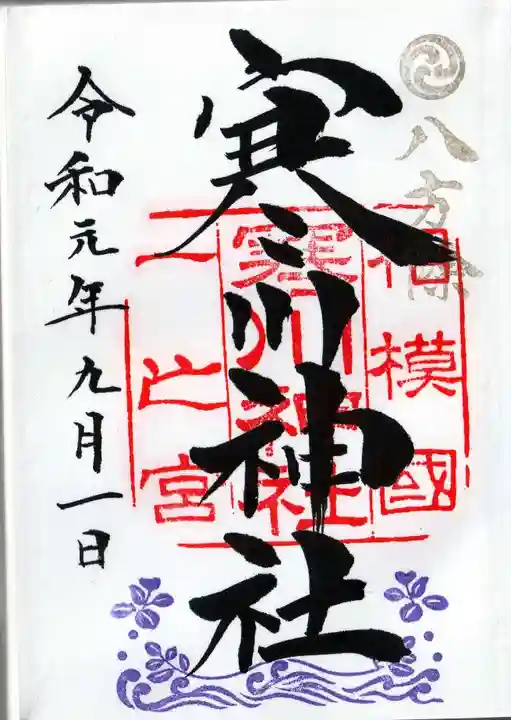 八方除
寒川神社
相模國
寒川神社
一之宮
令和元年九月一日